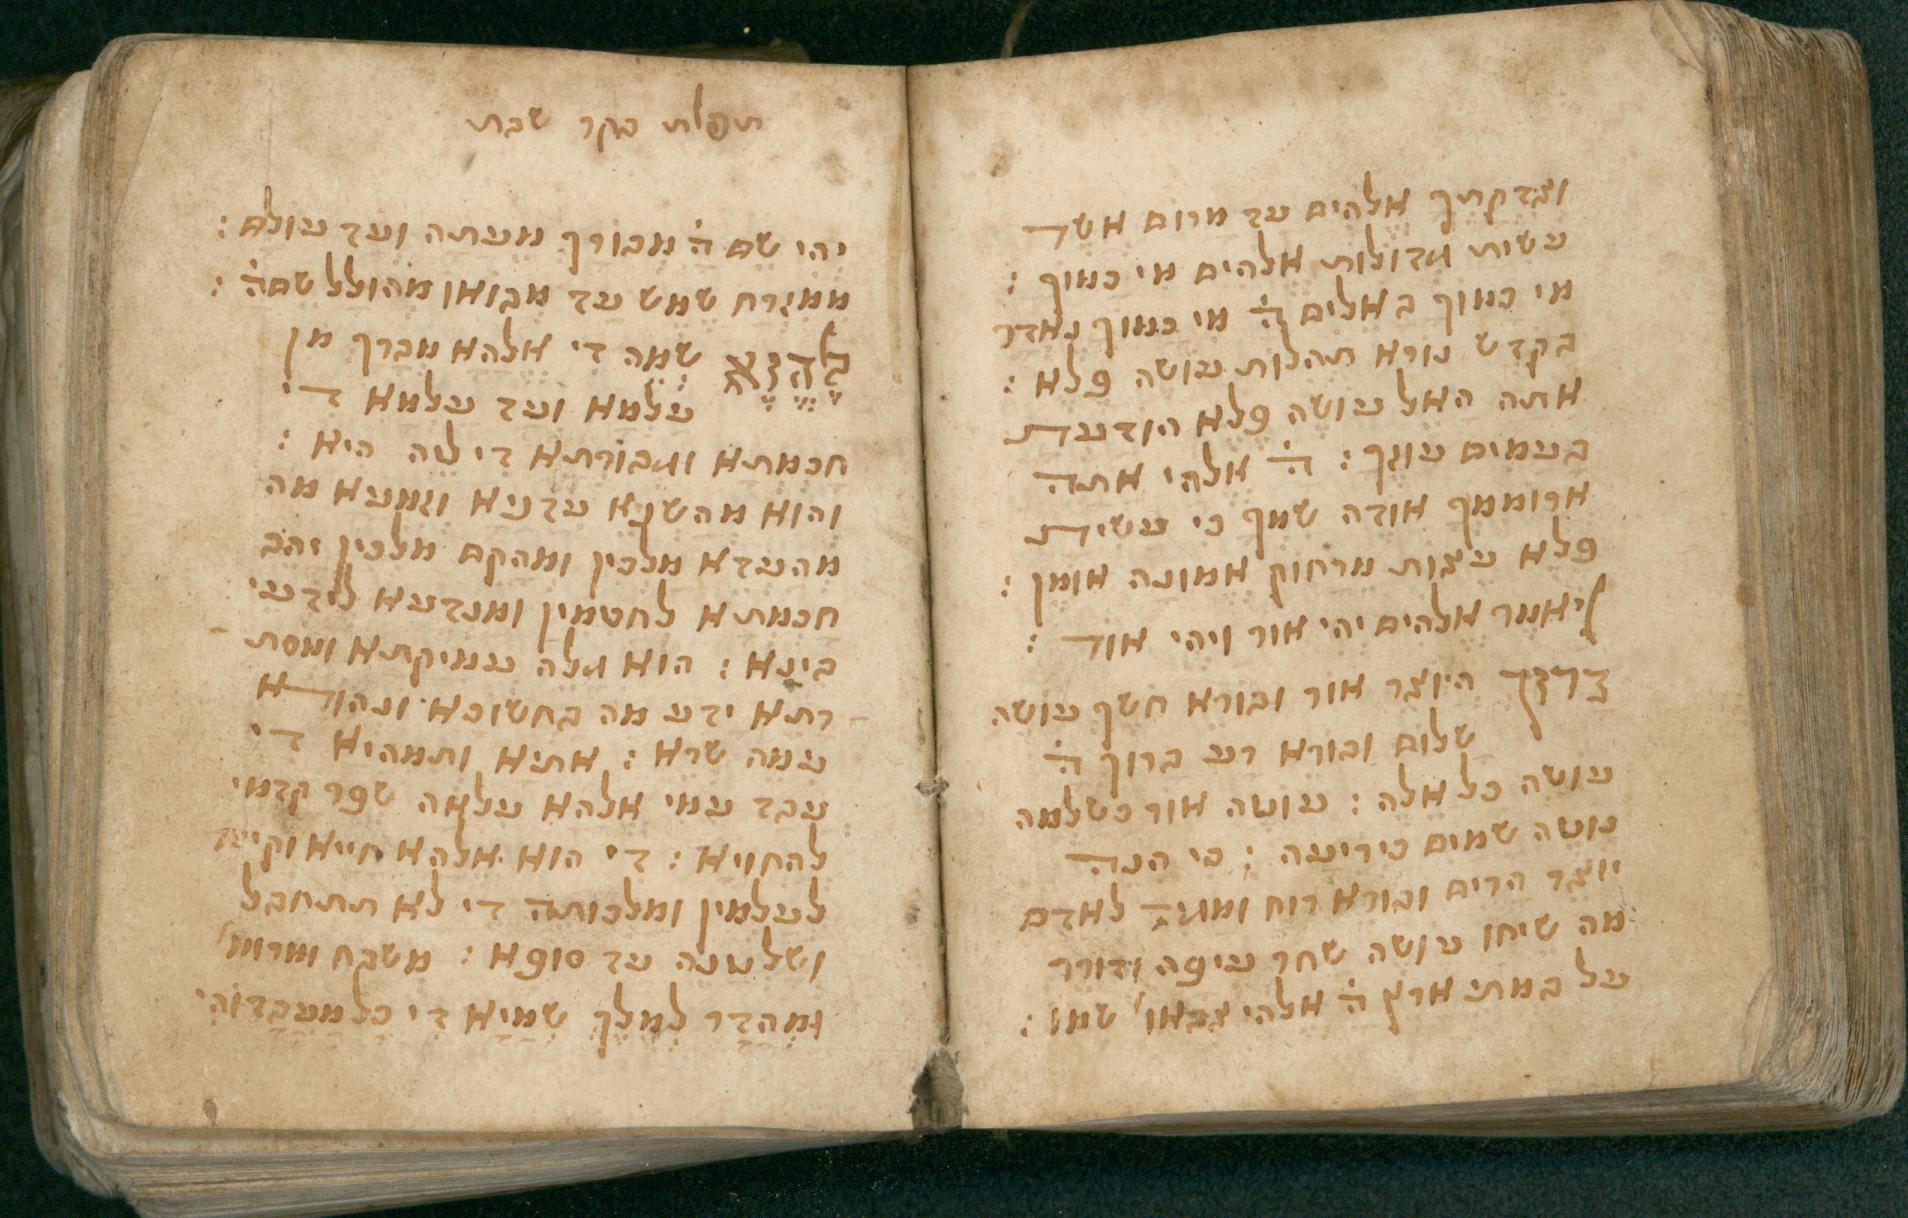 וצדקתך אלהים עד מרום אשר
עשית גדולות אלהים מי כמוך :
מי כמוך באלים ה' מי כמוך נאדר
בקדש נורא תהלות עושה פלא :
אתה האל עושה פלא הודעת
בעמים עוזך : ה' אלהי אתה
ארוממך אודה שמך כי עשית
פלא עצות מרחוק אמונה אומן :
ויאמר אלהים יהי אור ויהי אור :
היוצר אור ובורא חשך עושה
שלום ובורא רע ברוך ה'
עושה כל אלה : עושה אור כשלמה
נוטה שמים כיריעה : כי הנה
יוצר הרים ובורא רוח ומגיד לאדם
מה שיחו עושה שחר עיפה ודורך
על במתי ארץ ה' אלהי צבאו' שמו :
תפלת בקר שבת
יהי שם ה' מבורך מעתה ועד עולם :
ממזרח שמש עד מבואו מהולל שם ה' :
להוא שמה די אלהא מברך מן
עלמא ועד עלמא די
חכמתא וגבורתא די ליה היא :
והוא מהשניא עדניא וזמניא מה
מהעדא מלכין ומהקם מלכין יהב
חכמתא לחכימין ומנדעא לידעי
בינא : הוא גלה עמיקתא ומסת
רתא ידע מה בחשוכא ונהורא
עמה שרא : אתיא ותמהיא די
עבד עמי אלהא עלאה שפר קדמי
להחויא : די הוא אלהא חייא וקים
לעלמין ומלכותה די לא תתחבל
ושלטנה עד סופא : משבח ומרומ'
ומהדר למלך שמיא די כל מעבדוהי